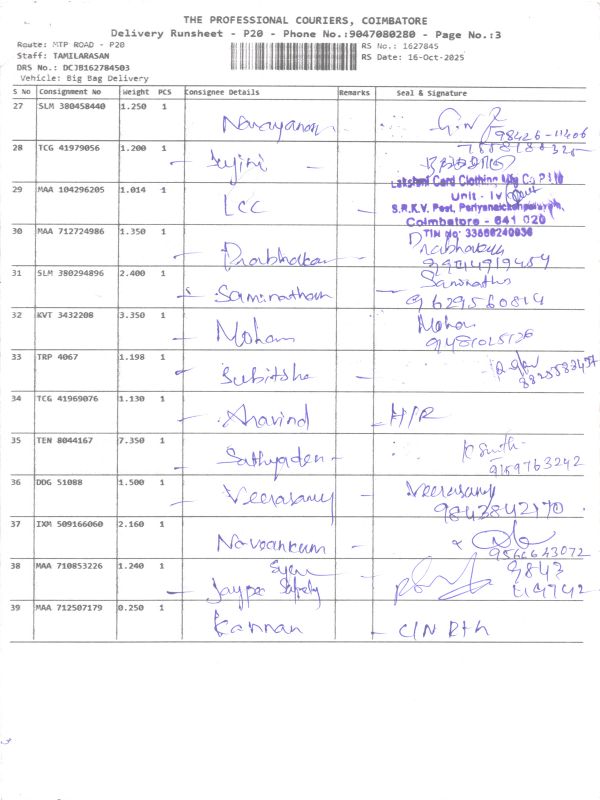 THE PROFESSIONAL COURIERS, COIMBATORE
Delivery Runsheet - P20 - Phone No.:9047080280 - Page No.:3
Route: MTP ROAD - P20 RS No.: 1627845
Staff: TAMILARASAN RS Date: 16-Oct-2025
DRS No.: DCJB162784503
Vehicle: Big Bag Delivery
S No Consignment No Weight PCS Consignee Details Remarks Seal & Signature
27 SLM 380458440 1.250 1 Narayanan 98426-11406
28 TCG 41979056 1.200 1 Sujini
29 MAA 104296205 1.014 1 LCC Lakshmi Card Clothing Mfg Co P Ltd
Unit - IV
S.R.K.V. Post, Periyanaickenpalayam,
Coimbatore - 641 020
TIN No: 33666240936
30 MAA 712724986 1.350 1 Prabhakar Prabhakar
31 SLM 380294896 2.400 1 Saminathan Saminathan
9629560814
32 KVT 3432208 3.350 1 Mohan Mohan
9481025136
33 TRP 4067 1.198 1 Subitsha
34 TCG 41969076 1.130 1 Aravind H/R
35 TEN 8044167 7.350 1 Sathyaden
9159763242
36 DDG 51088 1.500 1 Veerasamy Veerasamy
9843842170
37 IXM 509166060 2.160 1 Naveenkum
9566643072
38 MAA 710853226 1.240 1 Jaypee Safety 9843
39 MAA 712507179 0.250 1 Kannan C/N Rth